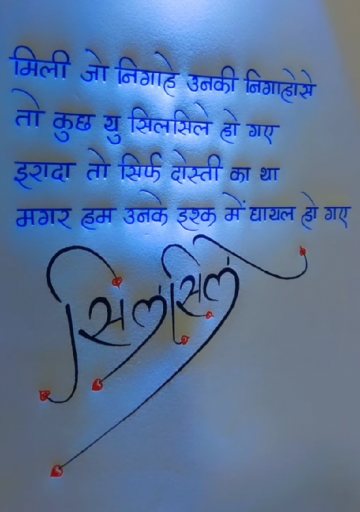 मिली जो निगाहे उनकी निगाहोसे
तो कुछ यु सिलसिले हो गए
इरादा तो सिर्फ दोस्ती का था
मगर हम उनके इश्क में घायल हो गए
सिलसिले